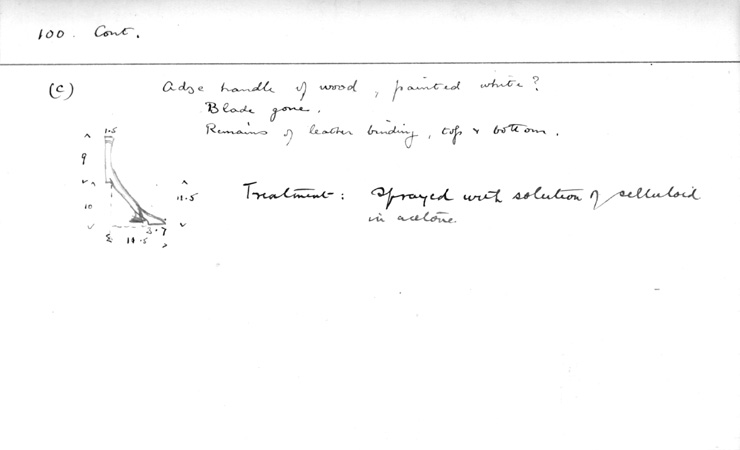 100. Cont.
(c) Adse handle of wood, painted white?
Blade gone.
Remains of leather binding, top & bottom.
1.5
9
10
11.5
3.7
11.5
Treatment: Sprayed with solution of celluloid
in acetone.